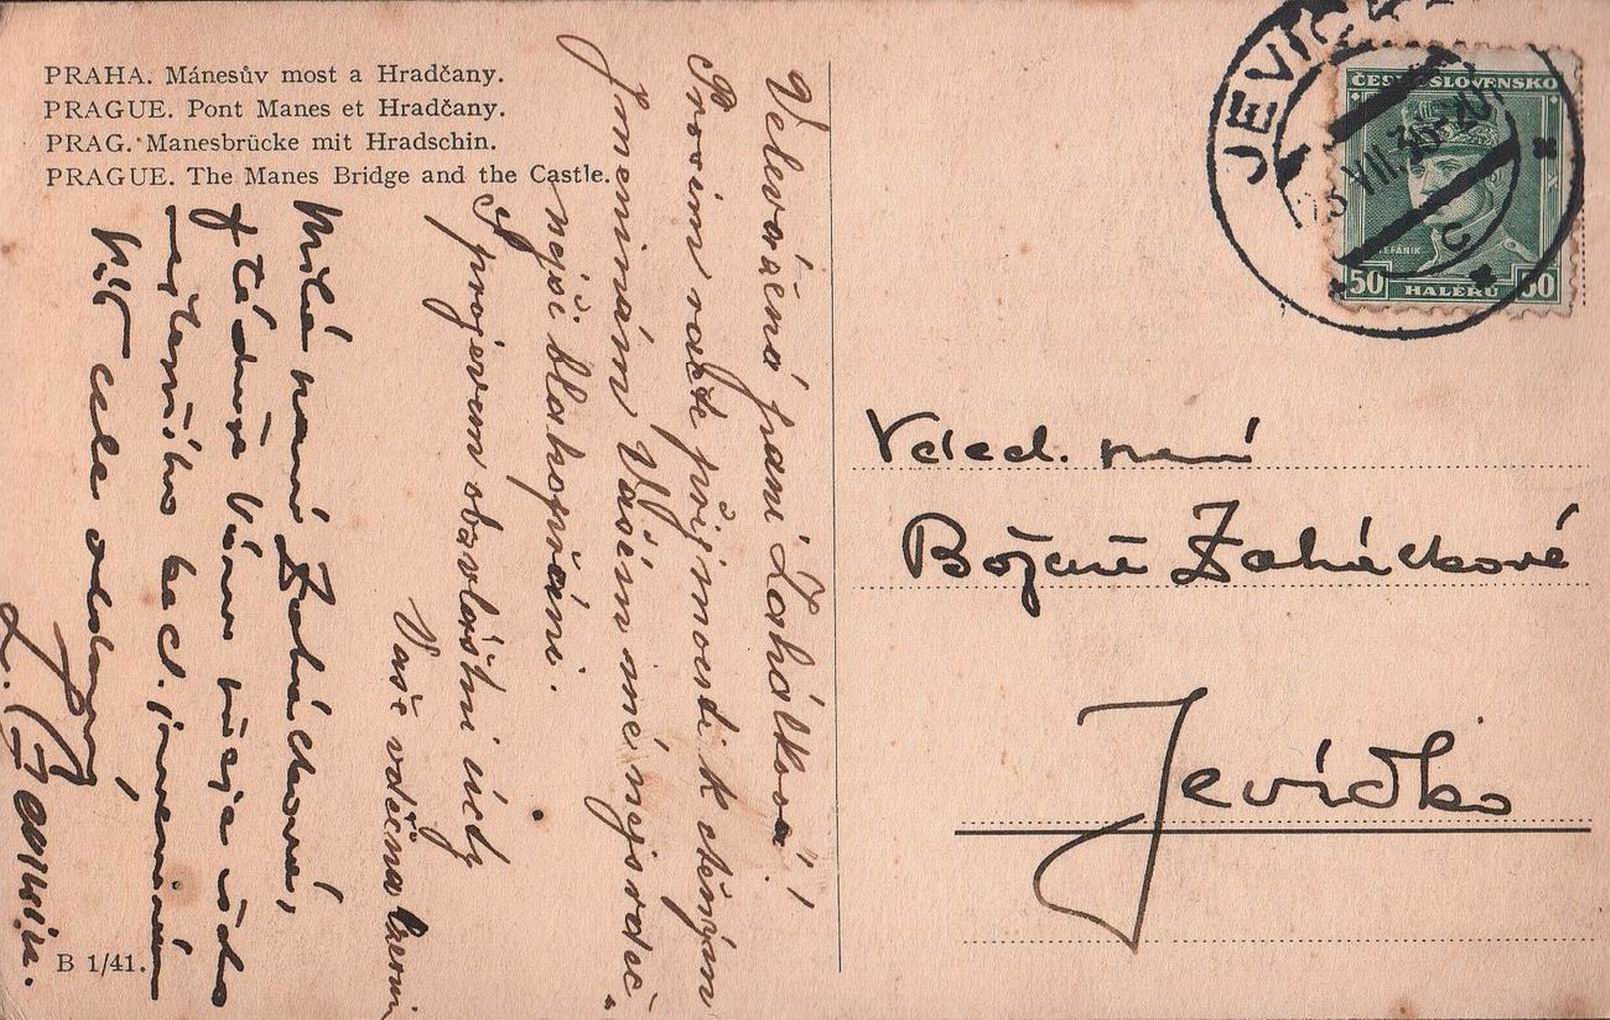 PRAHA. Mánesův most a Hradčany.
PRAGUE. Pont Manes et Hradčany.
PRAG. Manesbrücke mit Hradschin.
PRAGUE. The Manes Bridge and the Castle.
Velevážená paní Zahálková!
Prosím račte přijmouti k ctěným
jmeninám Vašim mé nejsrdeč-
nější blahopřání.
S projevem obzvláštní úcty
Vaše vděčná
Milá paní Zahálková,
z té duše Vám přeje všeho
k ct. jmeninám
Vić cele oddaný
B 1/41.
JEVÍČK
VIII.36-20
ČESKOSLOVENSKO
ŠTEFÁNIK
50 HALÉŘŮ 50
paní
Boženě Zahálkové
Jevíčko